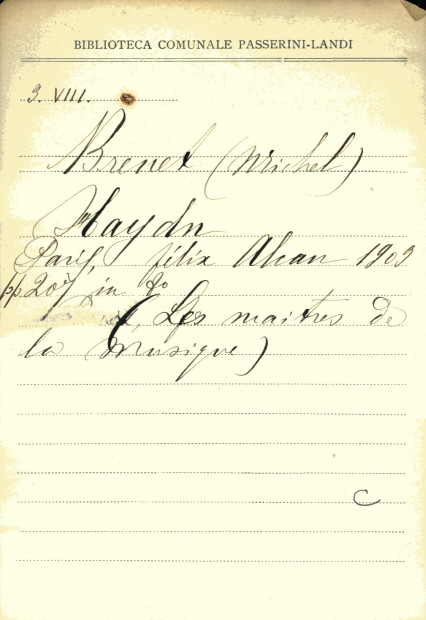 BIBLIOTECA COMUNALE PASSERINI-LANDI
3. VIII.
Brenet (Michel)
Haydn
Paris, félix Alcan 1909
pp. 207 in 8o
(Les maitres de
la Musique)
C